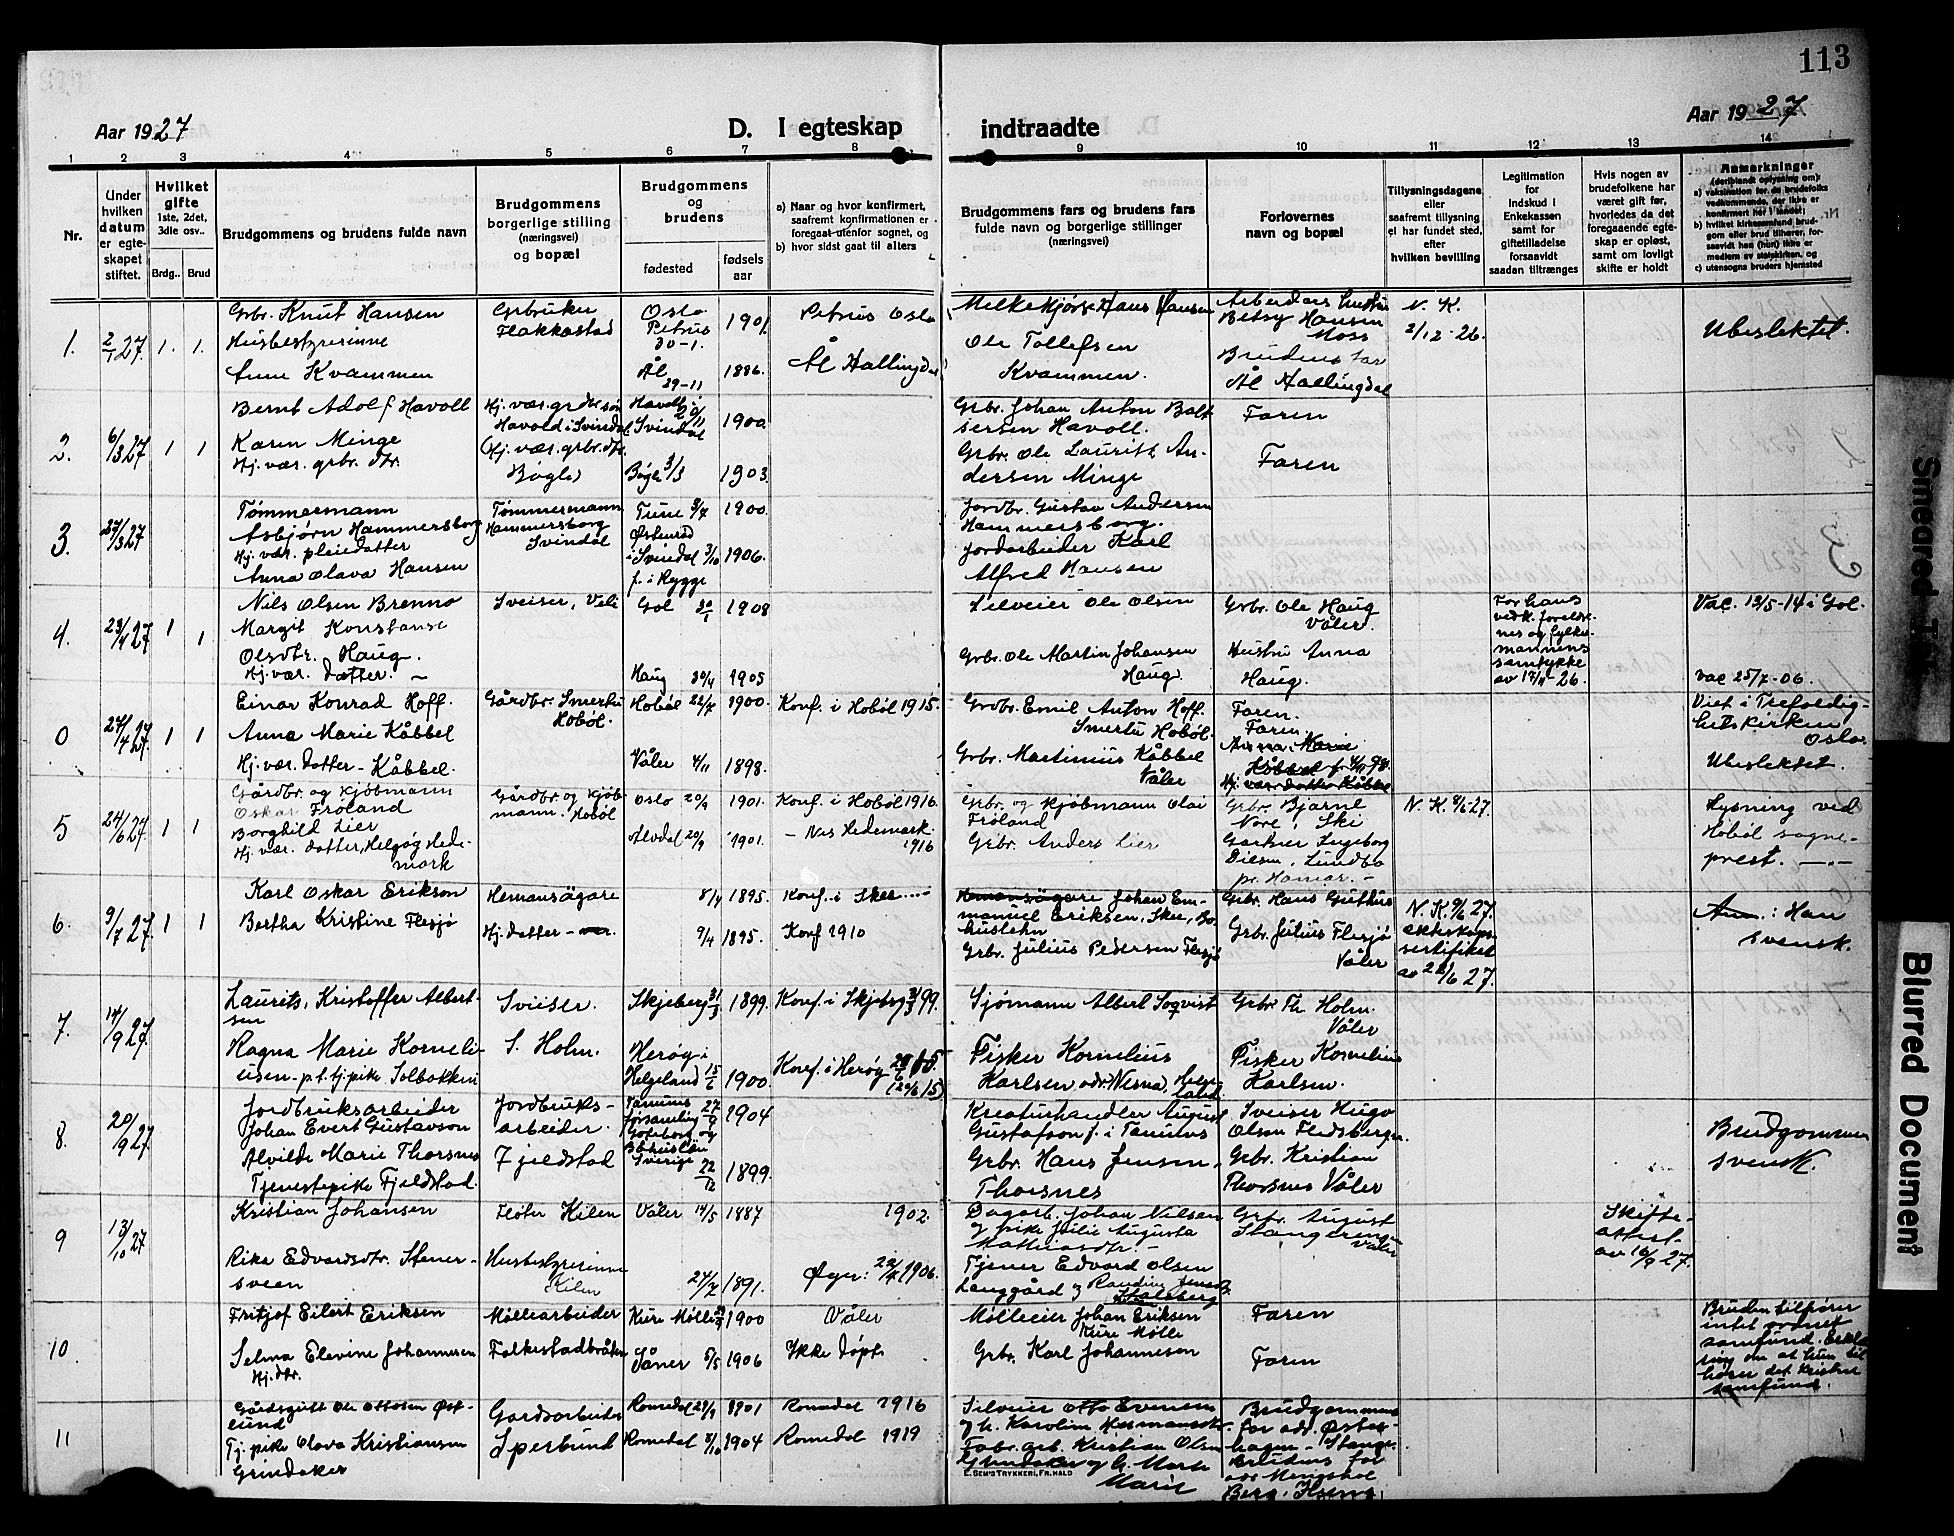 113
Aar 1927
D. I egteskap indtraadte
Aar 1927
1 2 3 4 5 6 7 8 9 10 11 12 13 14
Nr.
Under hvilken datum er egteskapet stiftet.
Hvilket gifte 1ste, 2det, 3die osv..
Brdg.. Brud
Brudgommens og brudens fulde navn
Brudgommens borgerlige stilling (næringsvei) og bopæl
Brudgommens og brudens
fødested
fødsels aar
a) Naar og hvor konfirmert, saafremt konfirmationen er foregaat utenfor sognet, og
b) hvor sidst gaat til alters
Brudgommens fars og brudens fars fulde navn og borgerlige stillinger (næringsvei)
Forlovernes navn og bopæl
Tillysningsdagene eller saafremt tillysning ei har fundet sted, efter hvilken bevilling
Legitimation for indskud i Enkekassen samt for giftetilladelse forsaavidt saadan tiltrænges
Hvis nogen av brudefolkene har været gift før, hvorledes da det foregaaende egteskap er opløst, samt om lovligt skifte er holdt
Anmerkninger (deriblandt oplysning om):
a) vaksination for de brudefolks vedkommende, der ikke er konfirmert her i landet;
b) hvilket kirkesamfund brudgom eller brud tilhører, forsaavidt han (hun) ikke er medlem av statskirken, og
c) utensogns bruders hjemsted
1. 2/1 27. 1. 1.
Grbr. Knut Hansen
Husbestyrerinne
Anne Kvammen
Grbruker
Flakkastad
Oslo
Petrus
30-1. 1901
Ål
29-11 1886.
Petrus Oslo
Ål Hallingdal
Melkekjører Hans Hansen
Ole Tollefsen
Kvammen.
Arbeiders hustru
Betsy Hansen
Moss
Brudens far
Ål Hallingdal
N. K.
2/12-26.
Ubeslektet.
2. 6/3 27 1 1
Bernt Adolf Havoll
Karen Minge
Hj. vær. grbr. dtr.
Hj. vær. grdbr. søn
Havold i Svindal.
Hj. vær. grbr. dtr.
Bøgle
Havoll 20/11
Svindal 1900.
Bøgle 3/3 1903.
Grbr. Johan Anton Balt
sersen Havoll.
Grbr. Ole Laurits An-
dersen Minge
Faren
Faren
3. 27/3 27
Tømmermann
Asbjørn Hammersborg
Hj. vær. pleiedatter
Anna Olava Hansen
Tømmermann
Hammersborg
Svindal
Tune 9/7 1900.
i Svindal 3/10 1906.
f. i Rygge
Jordbr. Gustav Andersen
Hammersborg.
Jordarbeider Karl
Alfred Hansen
4. 23/4 27 1 1
Nils Olsen Brenno
Margit Konstanse
Olsdtr. Haug.
Hj. vær. datter. –
Sveiser, Veli
Gol 30/1 1908
Haug 30/4 1905
Ole Olsen
Grbr. Ole Martin Johansen
Haug.
Grbr. Ole Haug
Våler.
Hustru Anna
Haug.
For hans
vedk. foreldre-
nes og fylkes-
mannens
samtykke
av 17/11-26.
Vac. 13/5-14 i Gol.
vac 25/7-06.
0 27/4 27. 1 1
Einar Konrad Hoff.
Anna Marie Kåbbel
Hj. vær. datter – Kåbbel.
Gårdbr. Smertu
Hobøl.
Hobøl 22/7 1900.
Våler 4/11 1898.
Konf. i Hobøl 1915.
Grdbr. Emil Anton Hoff.
Smertu Hobøl.
Grbr. Martinius Kåbbel
Våler
Faren.
Faren.
Anna Marie
Kåbbel f. 4/11 98.
Hj. vær. datter Kåbbel
Viet i Trefoldig-
hetskirken
Oslo.
Ubeslektet.
5 24/6 27 1 1
Gårdbr. og kjøbmann
Oskar Frøland
Borghild Lier
Hj. vær. datter, Helgøy Hede-
mark
Gårdbr. og kjøb-
mann. Hobøl
Oslo 20/9 1901.
Alvdal 20/9 1901.
Konf. i Hobøl 1916.
– Nes Hedemark.
1916
Grbr. og kjøbmann Olai
Frøland
Grbr. Anders Lier
Grbr. Bjarne
Nore, Ski
Gartner Ingeborg
Diesen, Lundbo
pr. Hamar. –
N. K. 8/6-27.
Lysning ved
Hobøl sogne-
prest. –"–
6 9/7 27. 1 1
Karl Oskar Erikson
Bertha Kristine Flesjø
Hemansägare
Hj. datter –
8/4 1895.
9/4 1895.
Konf. i Skee
Konf 1910
Hemansägare Johan Em-
manuel Eriksen, Skee, Bo-
huslehn
Grbr. Julius Pedersen Flesjø
Grbr. Hans Guthus
Grbr. Julius Flesjø
Våler
N. K. 9/6 27.
ekteskaps-
sertifikat
av 22/6 27.
Anm.: Han
svensk.
7. 14/9 27.
Laurits, Kristoffer Albert-
sen
Ragna Marie Korneli-
usen. p.t. tj. pike Solbakken
Sveiser.
S. Holm.
Skjeberg 31/3 1899.
Herøy i
Helgeland 15/6 1900.
Konf. i Skjeberg 31/3 99.
Konf. i Herøy
(20/6 15)
Sjømann Albert Soqvist
Fisker Kornelius
Karlsen, adr. Nesna, Helge
land
Grbr. Th. Holm.
Våler
Fisker Kornelius
Karlsen.
8. 20/9 27.
Jordbruksarbeider
Johan Evert Gustavson
Alvilde Marie Thorsnes
Tjenestepike Fjeldstad.
Jordbruks-
arbeider.
Fjeldstad
Tanums
forsamling 27/9 1904
Göteborg og
Bohuslän
Sverige 22/12 1899.
Kreaturhandler August
Gustafson f. i Tanums
Grbr. Hans Jensen
Thorsnes
Sveiser Hugo
Olsen Flesberg.
Grbr. Kristian
Thorsnes Våler
Brudgommen
svensk.
9 13/10 27
Kristian Johansen
Rika Edvardsdtr. Stener-
sveen
Fløter Kilen
Husbestyrerinne
Kilen
Våler 14/5 1887
24/7 1891.
1902.
Øyer: 22/4 1906.
Dagarb. Johan Nilsen
og pike Julie Augusta
Mathiasdtr. –
Tjener Edvard Olsen
Langgård og Randine Jensdtr.
Stalsberg
Grbr. August
Stangereng
Våler
Skifte-
attest
av 16/9 27.
10
Fritjof Eilert Eriksen
Selma Elevine Johannesen
Hj. dtr.
Møllearbeider
Folkestadbråten
Kure Mølle 1900
Såner 5/5 1906
Våler
Ikke døpt
Mølleeier Johan Eriksen
Kure Mølle
Grbr. Karl Johannesen
Faren
Faren
Bruden tilhører
intet ordnet
samfund. Erklæ
ring om at hun til
hører det kristne
samfund.
11
Gårdsgutt Ole Ottosen Øst-
lund
Tj. pike Olava Kristiansen
Grindaker
Gardsarbeider
Sperbund
Romedal 29/9 1901
Romedal 8/10 1904
Romedal 1916
Romedal 1919
Otto Evensen
og h. Karoline Hermansdtr.
Fabr. arb. Kristian Olsen
Grindaker og h. Marte
Marie
Brudgommens
far adr. Østen
hagen – Stange.
Brudens far
adr
Berg.
E. SEM'S TRYKKERI, FR. HALD
Smeared Text
Blurred Document